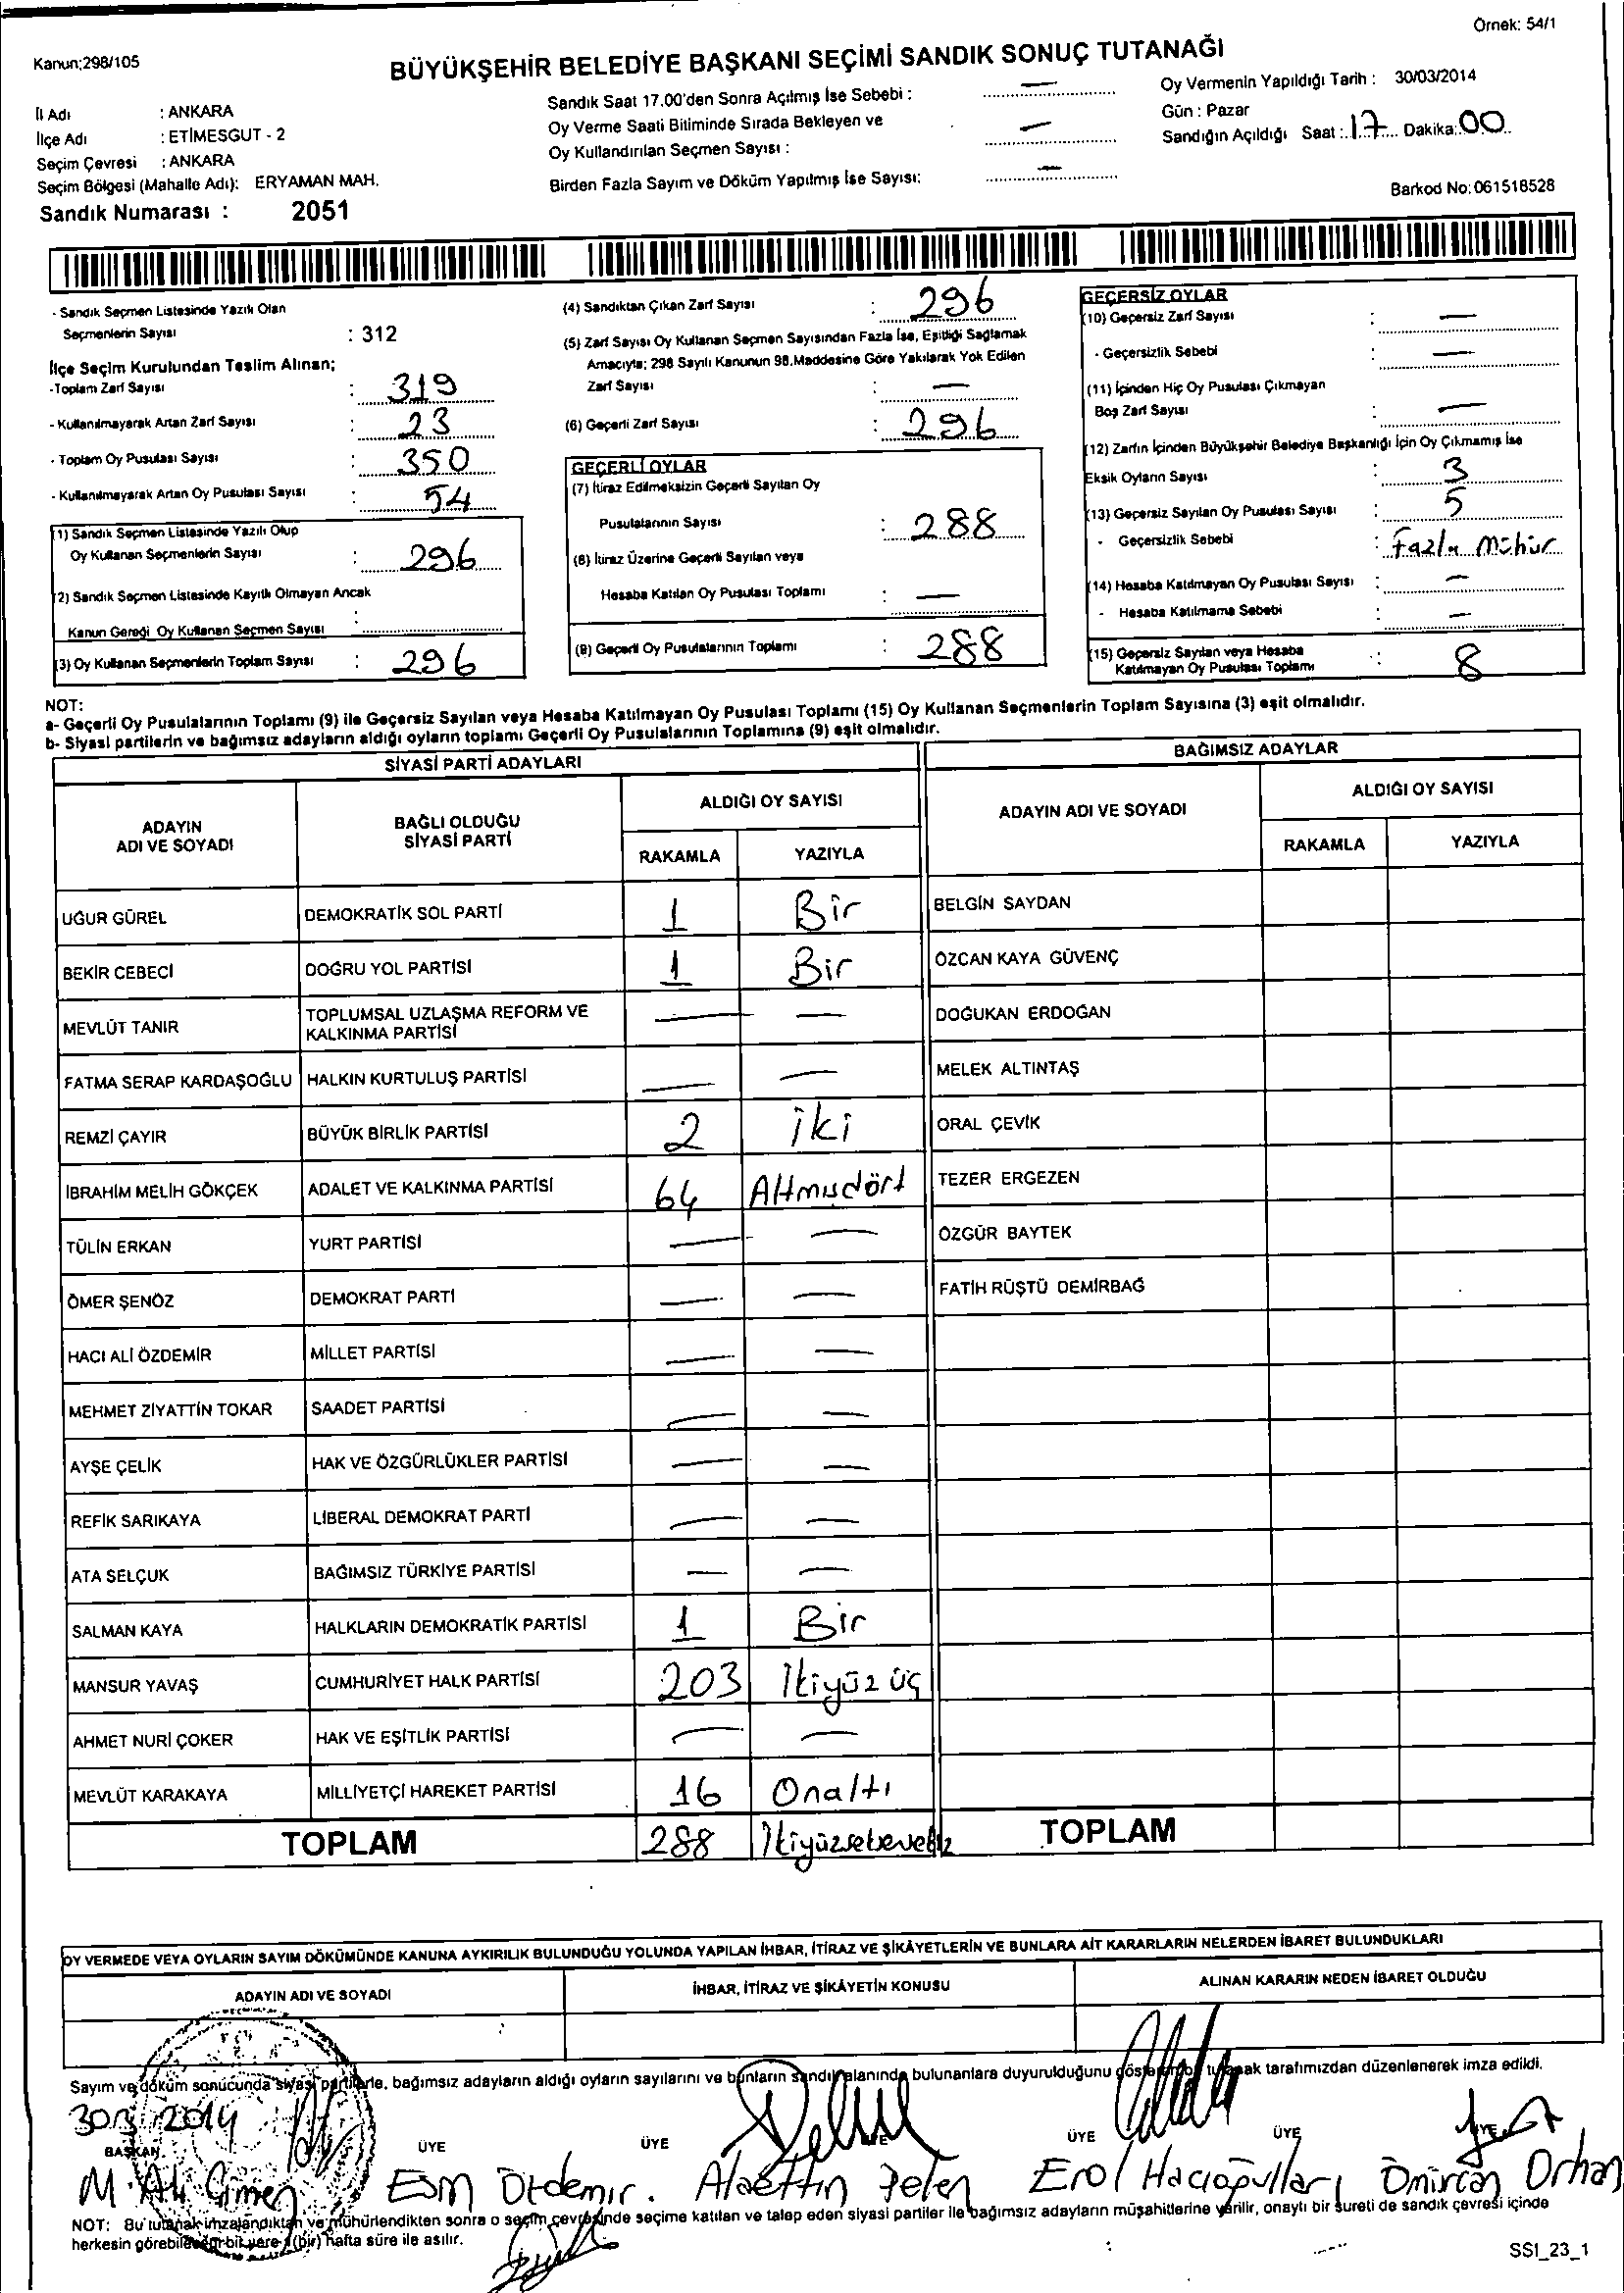 Örnek: 54/1
Kanun;298/105
BÜYÜKŞEHİR BELEDİYE BAŞKANI SEÇİMİ SANDIK SONUÇ TUTANAĞI
İl Adı : ANKARA
İlçe Adı : ETİMESGUT - 2
Seçim Çevresi : ANKARA
Seçim Bölgesi (Mahalle Adı): ERYAMAN MAH.
Sandık Numarası : 2051
Sandık Saat 17.00'den Sonra Açılmış İse Sebebi : —
Oy Verme Saati Bitiminde Sırada Bekleyen ve
Oy Kullandırılan Seçmen Sayısı : —
Birden Fazla Sayım ve Döküm Yapılmış İse Sayısı: —
Oy Vermenin Yapıldığı Tarih : 30/03/2014
Gün : Pazar
Sandığın Açıldığı Saat : 17 Dakika: 00
Barkod No: 061518528
- Sandık Seçmen Listesinde Yazılı Olan
Seçmenlerin Sayısı : 312
İlçe Seçim Kurulundan Teslim Alınan;
-Toplam Zarf Sayısı : 319
- Kullanılmayarak Artan Zarf Sayısı : 23
- Toplam Oy Pusulası Sayısı : 350
- Kullanılmayarak Artan Oy Pusulası Sayısı : 54
(1) Sandık Seçmen Listesinde Yazılı Olup
Oy Kullanan Seçmenlerin Sayısı : 296
(2) Sandık Seçmen Listesinde Kayıtlı Olmayan Ancak
Kanun Gereği Oy Kullanan Seçmen Sayısı :
(3) Oy Kullanan Seçmenlerin Toplam Sayısı : 296
(4) Sandıktan Çıkan Zarf Sayısı : 296
(5) Zarf Sayısı Oy Kullanan Seçmen Sayısından Fazla İse, Eşitliği Sağlamak
Amacıyla; 298 Sayılı Kanunun 98.Maddesine Göre Yakılarak Yok Edilen
Zarf Sayısı : —
(6) Geçerli Zarf Sayısı : 296
GEÇERLİ OYLAR
(7) İtiraz Edilmeksizin Geçerli Sayılan Oy
Pusulalarının Sayısı : 288
(8) İtiraz Üzerine Geçerli Sayılan veya
Hesaba Katılan Oy Pusulası Toplamı : —
(9) Geçerli Oy Pusulalarının Toplamı : 288
GEÇERSİZ OYLAR
(10) Geçersiz Zarf Sayısı : —
- Geçersizlik Sebebi : —
(11) İçinden Hiç Oy Pusulası Çıkmayan
Boş Zarf Sayısı : —
(12) Zarfın İçinden Büyükşehir Belediye Başkanlığı İçin Oy Çıkmamış İse
Eksik Oyların Sayısı : 3
(13) Geçersiz Sayılan Oy Pusulası Sayısı : 5
- Geçersizlik Sebebi : Fazla Mühür
(14) Hesaba Katılmayan Oy Pusulası Sayısı : —
- Hesaba Katılmama Sebebi : —
(15) Geçersiz Sayılan veya Hesaba
Katılmayan Oy Pusulası Toplamı : 8
NOT:
a- Geçerli Oy Pusulalarının Toplamı (9) ile Geçersiz Sayılan veya Hesaba Katılmayan Oy Pusulası Toplamı (15) Oy Kullanan Seçmenlerin Toplam Sayısına (3) eşit olmalıdır.
b- Siyasi partilerin ve bağımsız adayların aldığı oyların toplamı Geçerli Oy Pusulalarının Toplamına (9) eşit olmalıdır.
SİYASİ PARTİ ADAYLARI
ADAYIN ADI VE SOYADI
BAĞLI OLDUĞU SİYASİ PARTİ
ALDIĞI OY SAYISI
RAKAMLA YAZIYLA
UĞUR GÜREL DEMOKRATİK SOL PARTİ 1 Bir
BEKİR CEBECİ DOĞRU YOL PARTİSİ 1 Bir
MEVLÜT TANIR TOPLUMSAL UZLAŞMA REFORM VE KALKINMA PARTİSİ — —
FATMA SERAP KARDAŞOĞLU HALKIN KURTULUŞ PARTİSİ — —
REMZİ ÇAYIR BÜYÜK BİRLİK PARTİSİ 2 iki
İBRAHİM MELİH GÖKÇEK ADALET VE KALKINMA PARTİSİ 64 Altmışdört
TÜLİN ERKAN YURT PARTİSİ — —
ÖMER ŞENÖZ DEMOKRAT PARTİ — —
HACI ALİ ÖZDEMİR MİLLET PARTİSİ — —
MEHMET ZİYATTİN TOKAR SAADET PARTİSİ — —
AYŞE ÇELİK HAK VE ÖZGÜRLÜKLER PARTİSİ — —
REFİK SARIKAYA LİBERAL DEMOKRAT PARTİ — —
ATA SELÇUK BAĞIMSIZ TÜRKİYE PARTİSİ — —
SALMAN KAYA HALKLARIN DEMOKRATİK PARTİSİ 1 Bir
MANSUR YAVAŞ CUMHURİYET HALK PARTİSİ 203 İkiyüz üç
AHMET NURİ ÇOKER HAK VE EŞİTLİK PARTİSİ — —
MEVLÜT KARAKAYA MİLLİYETÇİ HAREKET PARTİSİ 16 Onaltı
TOPLAM 288
BAĞIMSIZ ADAYLAR
ADAYIN ADI VE SOYADI
ALDIĞI OY SAYISI
RAKAMLA YAZIYLA
BELGİN SAYDAN
ÖZCAN KAYA GÜVENÇ
DOĞUKAN ERDOĞAN
MELEK ALTINTAŞ
ORAL ÇEVİK
TEZER ERGEZEN
ÖZGÜR BAYTEK
FATİH RÜŞTÜ DEMİRBAĞ
TOPLAM
OY VERMEDE VEYA OYLARIN SAYIM DÖKÜMÜNDE KANUNA AYKIRILIK BULUNDUĞU YOLUNDA YAPILAN İHBAR, İTİRAZ VE ŞİKÂYETLERİN VE BUNLARA AİT KARARLARIN NELERDEN İBARET BULUNDUKLARI
ADAYIN ADI VE SOYADI İHBAR, İTİRAZ VE ŞİKÂYETİN KONUSU ALINAN KARARIN NEDEN İBARET OLDUĞU
Sayım ve döküm sonucunda siyasi partilerle, bağımsız adayların aldığı oyların sayılarını ve bunların sandık alanında bulunanlara duyurulduğunu gösteren bu tutanak tarafımızdan düzenlenerek imza edildi.
30.3.2014
BAŞKAN ÜYE ÜYE ÜYE ÜYE ÜYE
M. Ali Çimen Özdemir. Alaettin Erol Hacıoğulları Orhan
NOT: Bu tutanak imzalandıktan ve mühürlendikten sonra o seçim çevresinde seçime katılan ve talep eden siyasi partiler ile bağımsız adayların müşahitlerine verilir, onaylı bir sureti de sandık çevresi içinde
herkesin görebileceği bir yere 1(bir) hafta süre ile asılır.
SSI_23_1